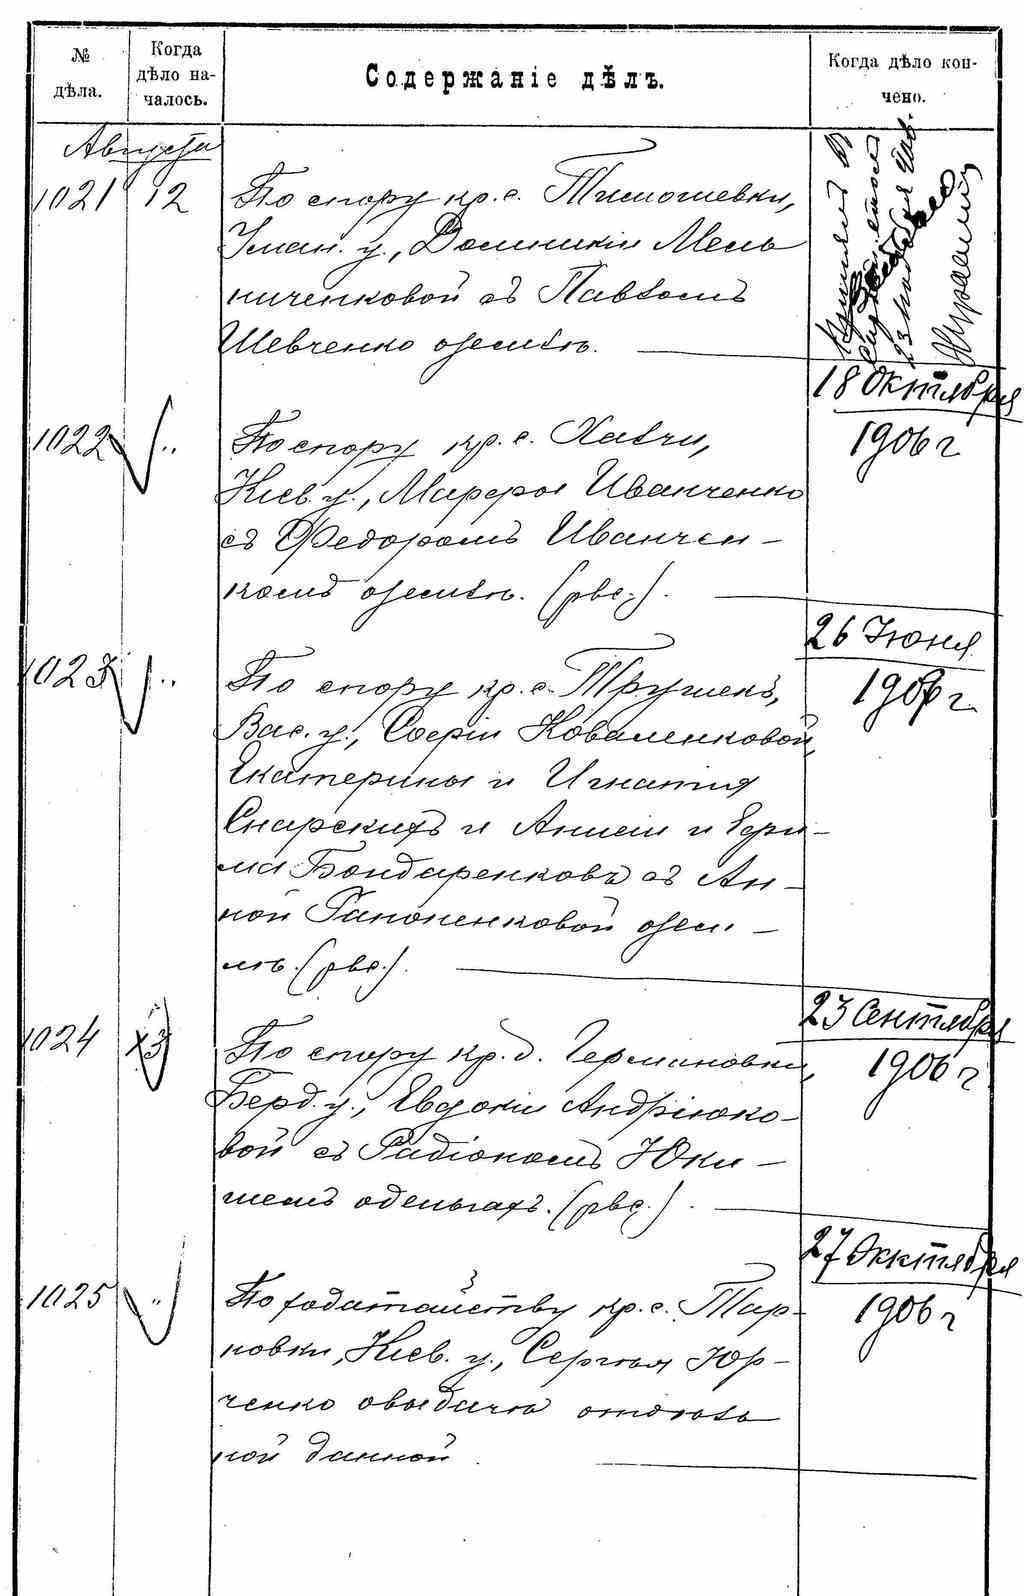 № дѣла.
Когда дѣло на-
чалось.
Содержаніе дѣлъ.
Когда дѣло кон-
чено.
Августа
1021 12 По спору кр. с. Тимошевки,
Уман. у., Домникіи Мель
ниченковой съ Павломъ
Шевченко оземлѣ.
23
18 Октября
1906 г
1022 „ По спору кр. с. Халчи,
Кіев. у., Марфы Иванченко
съ Федоромъ Иванчен-
комъ оземлѣ. (рвс.).
26 Июня
1906 г
1023 „ По спору кр. с. Трушекъ,
Вас. у., Софіи Коваленковой,
Екатерины и Игнатія
Снарскихъ и Анисіи и Ефи-
ма Бондаренковъ съ Ан-
ной Гапоненковой озем-
лѣ. (рвс.).
23 Сентября
1906 г
1024 13 По спору кр. д. Германовки,
Берд. у., Евдокіи Андріюко-
вой съ Радіономъ Юки-
шемъ оденьгахъ. (рвс.).
27 Октября
1906 г
1025 „ По ходатайству кр. с. Тар-
новки, Кіев. у., Сергѣя Юр-
ченко овыдачѣ отдѣль
ной данной.